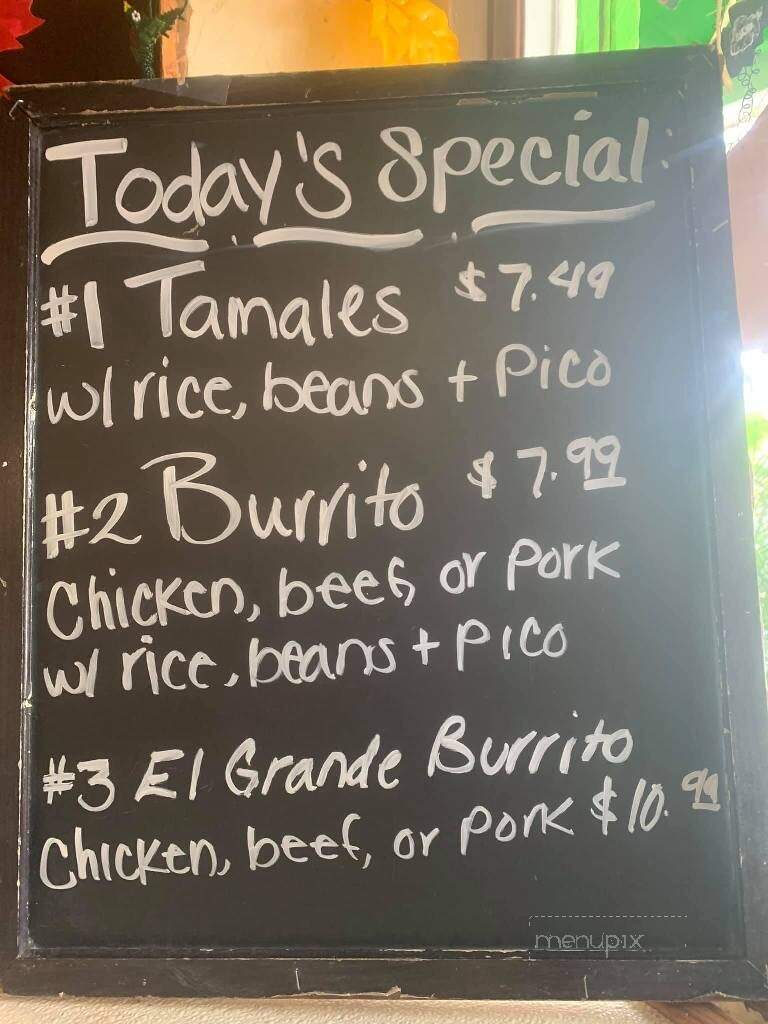 Today's Special:
#1 Tamales $7.49
w/ rice, beans + Pico
#2 Burrito $7.99
Chicken, beef, or Pork
w/ rice, beans + Pico
#3 El Grande Burrito
Chicken, beef, or Pork $10.99
menupix